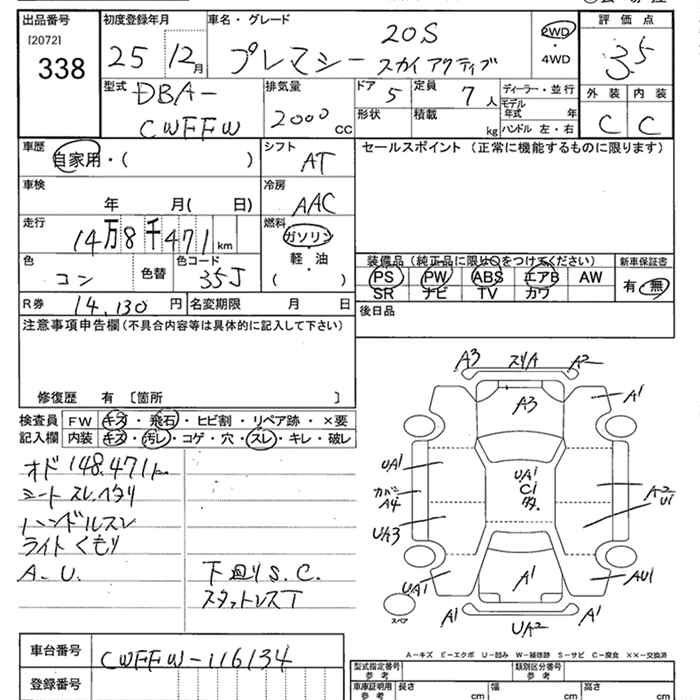 出品番号
[2072]
338
初度登録年月
25 12月
車名・グレード
20S
プレマシー スカイアクティブ
2WD
・
4WD
評価点
3.5
外装 内装
C C
型式
DBA-
CWFFW
排気量
2000 cc
ドア 5
定員 7人
形状
積載 kg
ディーラー・並行
モデル年式 年
ハンドル 左・右
車歴
自家用・( )
シフト
AT
セールスポイント (正常に機能するものに限ります)
車検
年 月( 日)
冷房
AAC
走行
14万8千471km
燃料
ガソリン
軽・油
( )
色
コン
色替
色コード
35J
装備品 (純正品に限り○をつけてください)
PS PW ABS エアB AW
SR ナビ TV カワ
新車保証書
有・無
R券 14,130 円
名変期限 月 日
後日品
注意事項申告欄(不具合内容等は具体的に記入して下さい)
修復歴 有 〔箇所 〕
検査員記入欄
FW キズ・飛石・ヒビ割・リペア跡・×要
内装 キズ・汚レ・コゲ・穴・スレ・キレ・破レ
オド 148,471km
シート スレ、ヘタリ
ハンドルスレ
ライト くもり
A.U. 下回りS.C.
スタットレスT
A3 スリA A2
A3 A1
UA1
カバー A4
UA3
UA1
UA1
C1
多
A2
U1
A1 AU1
A1 UA2 A1
スペア
A-キズ E-エクボ U-凹み W-補修跡 S-サビ C-腐食 ××-交換済
車台番号 CWFFW-116134
登録番号
型式指定番号
参考
類別区分番号
参考
車庫証明用
参考
長さ cm 幅 cm 高さ cm